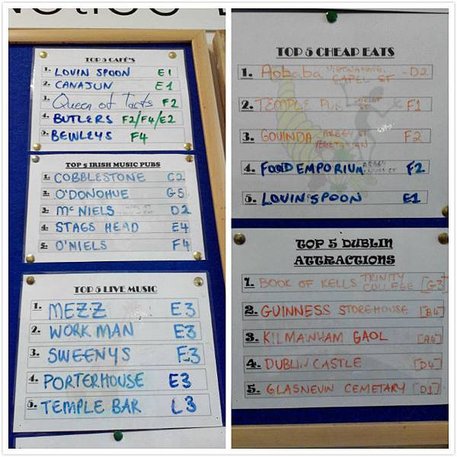 TOP 5 CAFÉ'S
1. LOVIN SPOON E1
2. CANAJUN E1
3. Queen of Tarts F2
4. BUTLERS F2/F4/E2
5. BEWLEYS F4
TOP 5 IRISH MUSIC PUBS
1. COBBLESTONE C2
2. O'DONOHUE G5
3. McNIELS D2
4. STAGS HEAD E4
5. O'NIELS F4
TOP 5 LIVE MUSIC
1. MEZZ E3
2. WORKMAN E3
3. SWEENYS F3
4. PORTERHOUSE E3
5. TEMPLE BAR L3
TOP 5 CHEAP EATS
1. Aobaba CAPEL ST - D2
2. TEMPLE E1
3. GOVINDA F2
4. FOOD EMPORIUM F2
5. LOVIN'SPOON E1
TOP 5 DUBLIN
ATTRACTIONS
1. BOOK OF KELLS TRINITY COLLEGE [G3]
2. GUINNESS STOREHOUSE [B4]
3. KILMAINHAM GAOL
4. DUBLIN CASTLE [D4]
5. GLASNEVIN CEMETARY [D1]